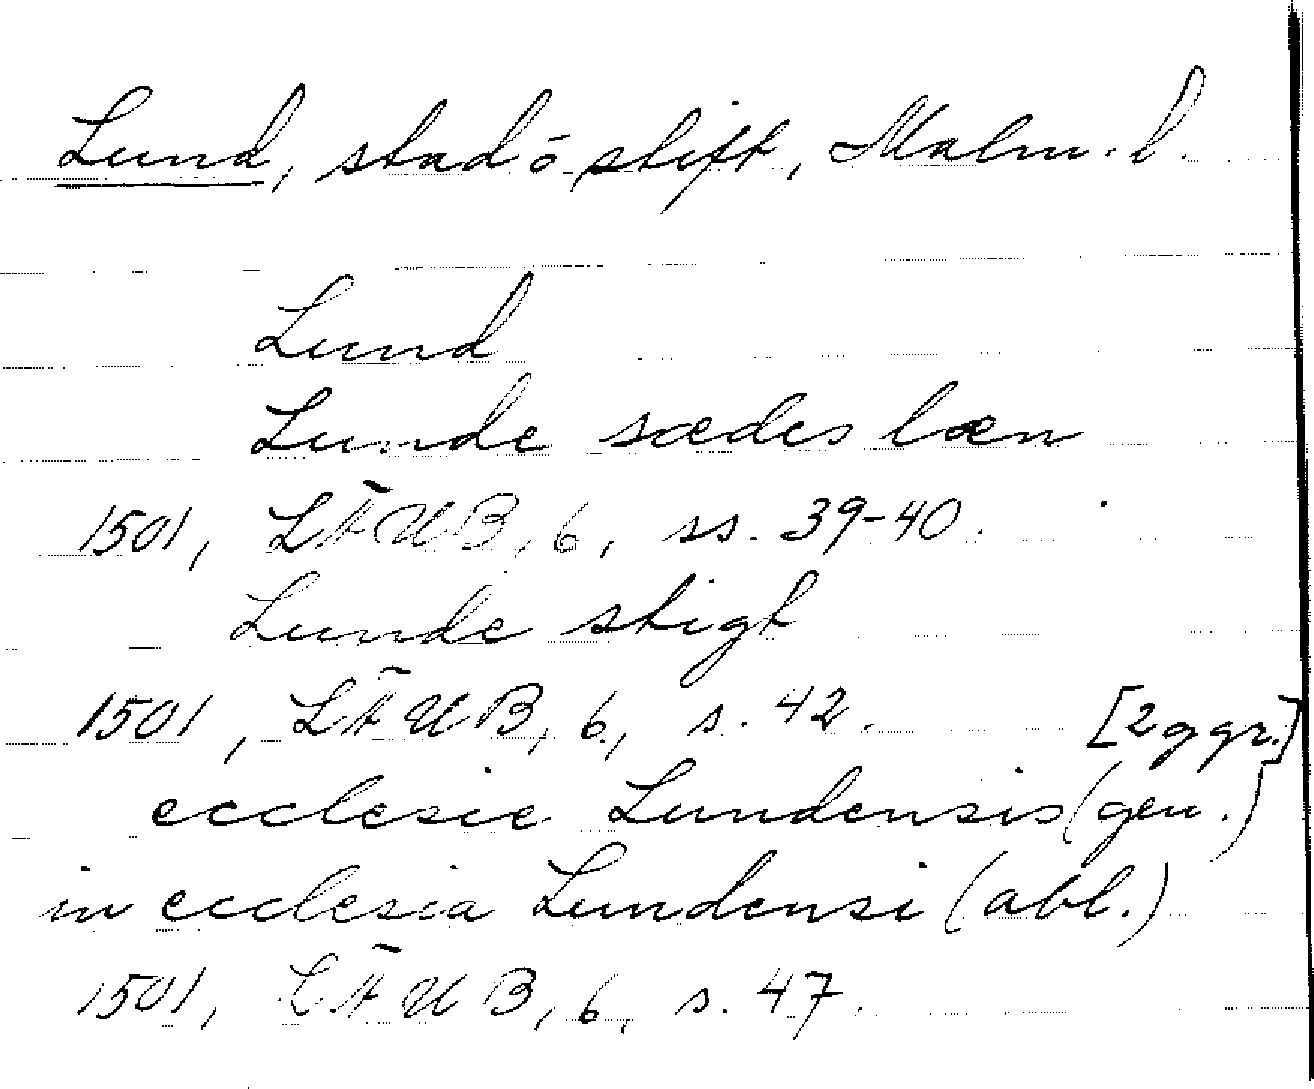 Lund, stad ō stift, Malm. l.
Lund
Lunde sædes læn
1501, LÄUB, 6, ss. 39-40.
Lunde stigt
1501, LÄUB, 6, s. 42. [2 ggr.]
ecclesie Lundensis (gen.)
in ecclesia Lundensi (abl.)
1501, LÄUB, 6, s. 47.